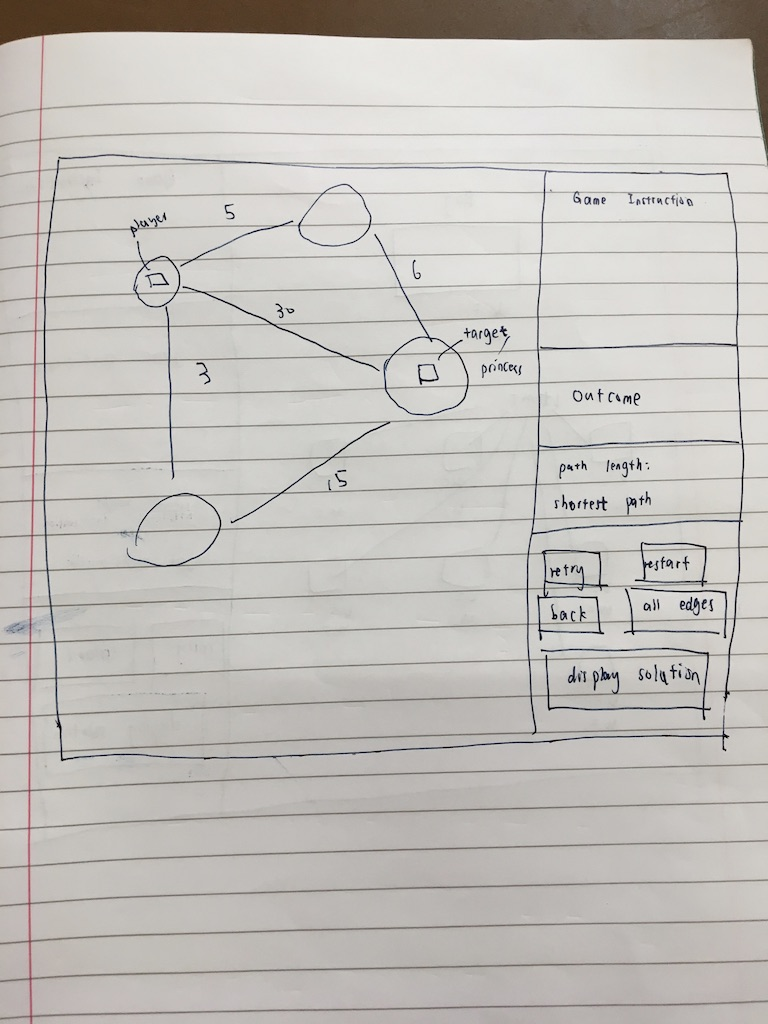 player
5
6
30
target
princess
3
15
Game Instruction
Outcome
path length:
shortest path
retry
restart
back
all edges
display solution